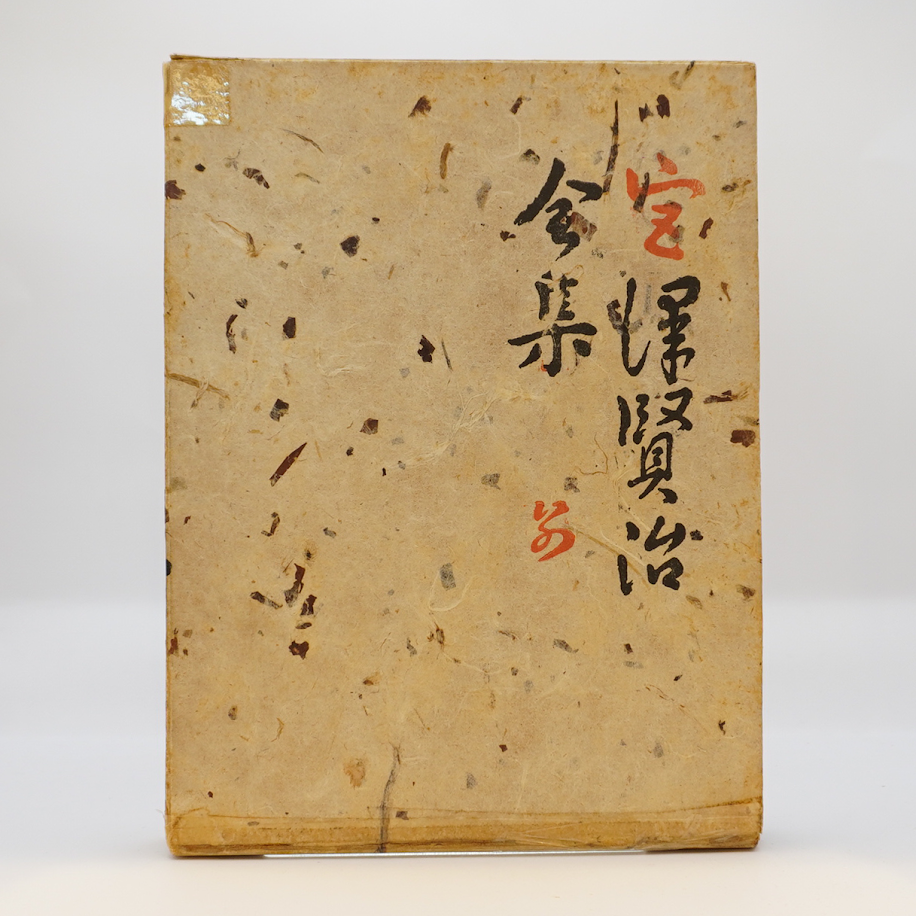 宮澤賢治
全集
別